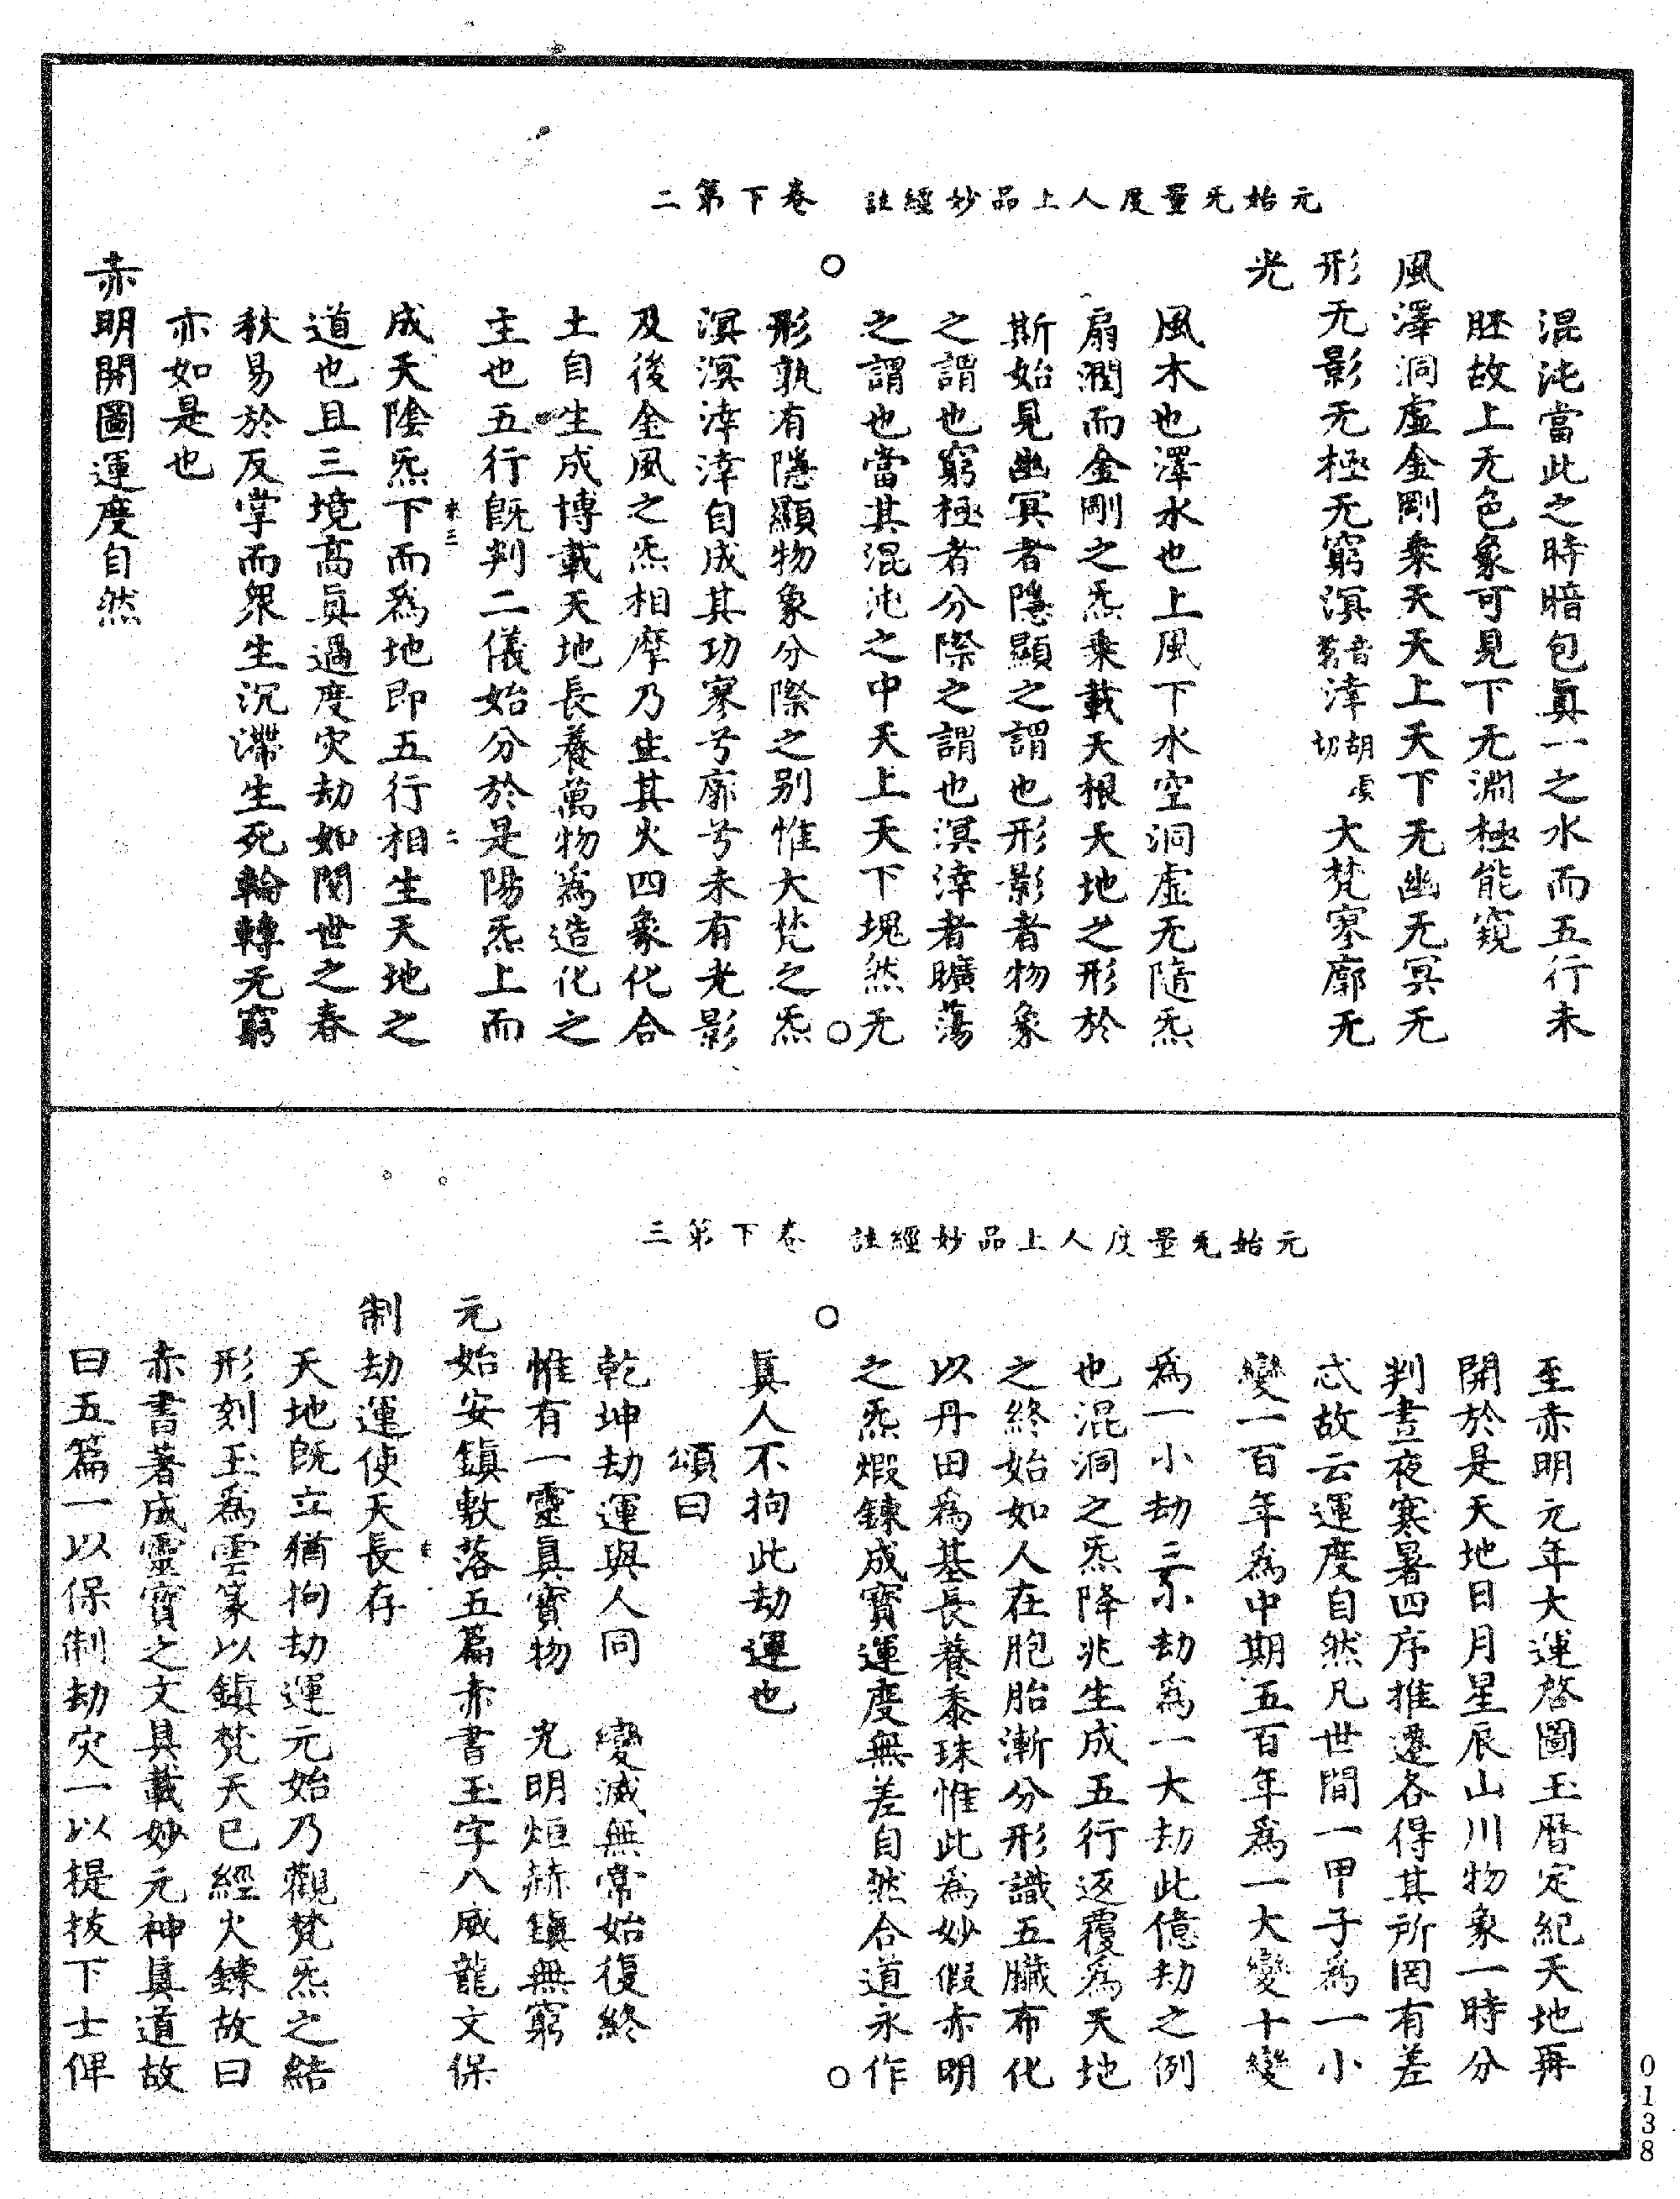 元始无量度人上品妙經註　卷下第二
混沌當此之時暗包眞一之水而五行未
胚故上无色象可見下无淵極能窺
風澤洞虛金剛乗天天上天下无幽无冥无
形无影无極无窮溟音茗涬胡頂切大梵寥廓无
光
風木也澤水也上風下水空洞虛无隨炁
扇潤而金剛之炁乗載天根天地之形於
斯始見幽冥者隱顯之謂也形影者物象
之謂也窮極者分際之謂也溟涬者曠蕩
之謂也當其混沌之中天上天下塊然无
形孰有隱顯物象分際之別惟大梵之炁
溟溟涬涬自成其功寥兮廓兮未有光影
及後金風之炁相摩乃生其火四象化合
土自生成博載天地長養萬物爲造化之
主也五行旣判二儀始分於是陽炁上而
成天隂炁下而爲地即五行相生天地之
道也且三境高眞過度灾劫如閱世之春
秋易於反掌而衆生沉滯生死輪轉无窮
亦如是也
赤明開圖運度自然
元始无量度人上品妙經註　卷下第三
至赤明元年大運啓圖玉曆定紀天地再
開於是天地日月星辰山川物象一時分
判晝夜寒暑四序推遷各得其所罔有差
忒故云運度自然凡世間一甲子爲一小
變一百年爲中期五百年爲一大變十變
爲一小劫三小劫爲一大劫此億劫之例
也混洞之炁降兆生成五行返覆爲天地
之終始如人在胞胎漸分形識五臟布化
以丹田爲基長養黍珠惟此爲妙假赤明
之炁煆鍊成寳運度無差自然合道永作
眞人不拘此劫運也
頌曰
乾坤劫運與人同　變滅無常始復終
惟有一靈眞寳物　光明炬赫鎭無窮
元始安鎭敷落五篇赤書玉字八威龍文保
制劫運使天長存
天地旣立猶拘劫運元始乃觀梵炁之結
形刻玉爲雲篆以鎭梵天已經火鍊故曰
赤書著成靈寳之文具載妙元神眞道故
曰五篇一以保制劫灾一以提拔下士俾
0138